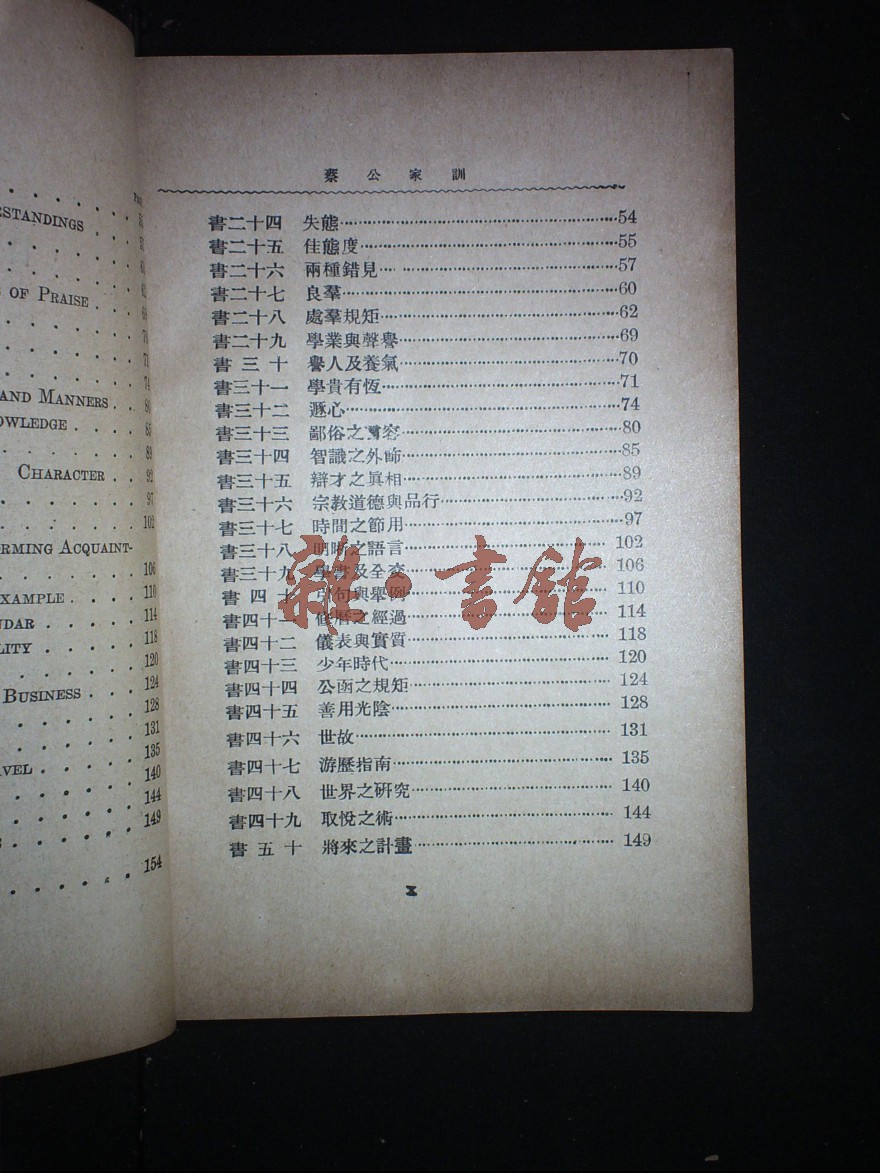 PAGE
RSTANDINGS
OF PRAISE
AND MANNERS . . 80
OWLEDGE . . 85
89
CHARACTER . . 92
97
102
RMING ACQUAINT-
106
EXAMPLE . . . 110
NDAR . . . . 114
LITY . . . . 118
120
BUSINESS . . . 124
128
131
AVEL . . . . 135
140
144
149
154
蔡公家訓
書二十四 失態 54
書二十五 佳態度 55
書二十六 兩種錯見 57
書二十七 良羣 60
書二十八 處羣規矩 62
書二十九 學業與聲譽 69
書三十 譽人及養氣 70
書三十一 學貴有恆 71
書三十二 遯心 74
書三十三 鄙俗之 80
書三十四 智識之外師 85
書三十五 辯才之眞相 89
書三十六 宗教道德與品行 92
書三十七 時間之節用 97
書三十八 明晰之語言 102
書三十九 學書及全 106
書四十 引句與舉例 110
書四十一 修曆之經過 114
書四十二 儀表與實質 118
書四十三 少年時代 120
書四十四 公函之規矩 124
書四十五 善用光陰 128
書四十六 世故 131
書四十七 游歷指南 135
書四十八 世界之硏究 140
書四十九 取悅之術 144
書五十 將來之計畫 149
X
雜·書館